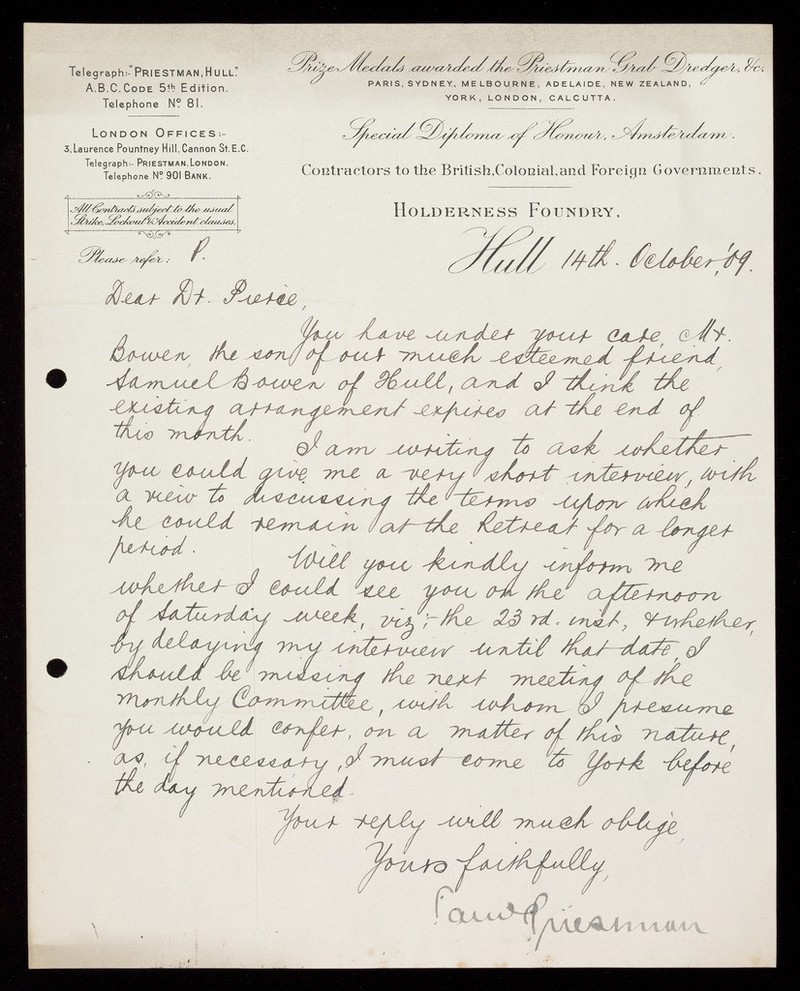 Telegraph:- "PRIESTMAN, HULL."
A.B.C. CODE 5th Edition.
Telephone No 81.
LONDON OFFICES:-
3, Laurence Pountney Hill, Cannon St. E.C.
Telegraph:- PRIESTMAN, LONDON.
Telephone No 901 BANK.
All Contracts subject to the usual
Strike, Lockout & Accident clauses.
Please refer: P.
Prize Medals awarded the Priestman Grab Dredger, &c.
PARIS, SYDNEY, MELBOURNE, ADELAIDE, NEW ZEALAND,
YORK, LONDON, CALCUTTA.
Special Diploma of Honour, Amsterdam.
Contractors to the British, Colonial, and Foreign Governments.
HOLDERNESS FOUNDRY,
Hull 14th. October, '09.
Dear Dr. Pierce,
You have under your care, Mr.
Bowen, the son of our much esteemed friend,
Samuel Bowen of Hull, and I think the
existing arrangement expires at the end of
this month. I am writing to ask whether
you could give me a very short interview, with
a view to discussing the terms upon which
he could remain at the Retreat for a longer
period. Will you kindly inform me
whether I could see you on the afternoon
of Saturday week, viz:- the 23rd. inst, & whether,
by delaying my interview until that date, I
should be missing the next meeting of the
monthly Committee, with whom I presume
you would confer, on a matter of this nature,
as, if necessary, I must come to York before
the day mentioned.
Your reply will much oblige,
Yours faithfully,
Priestman